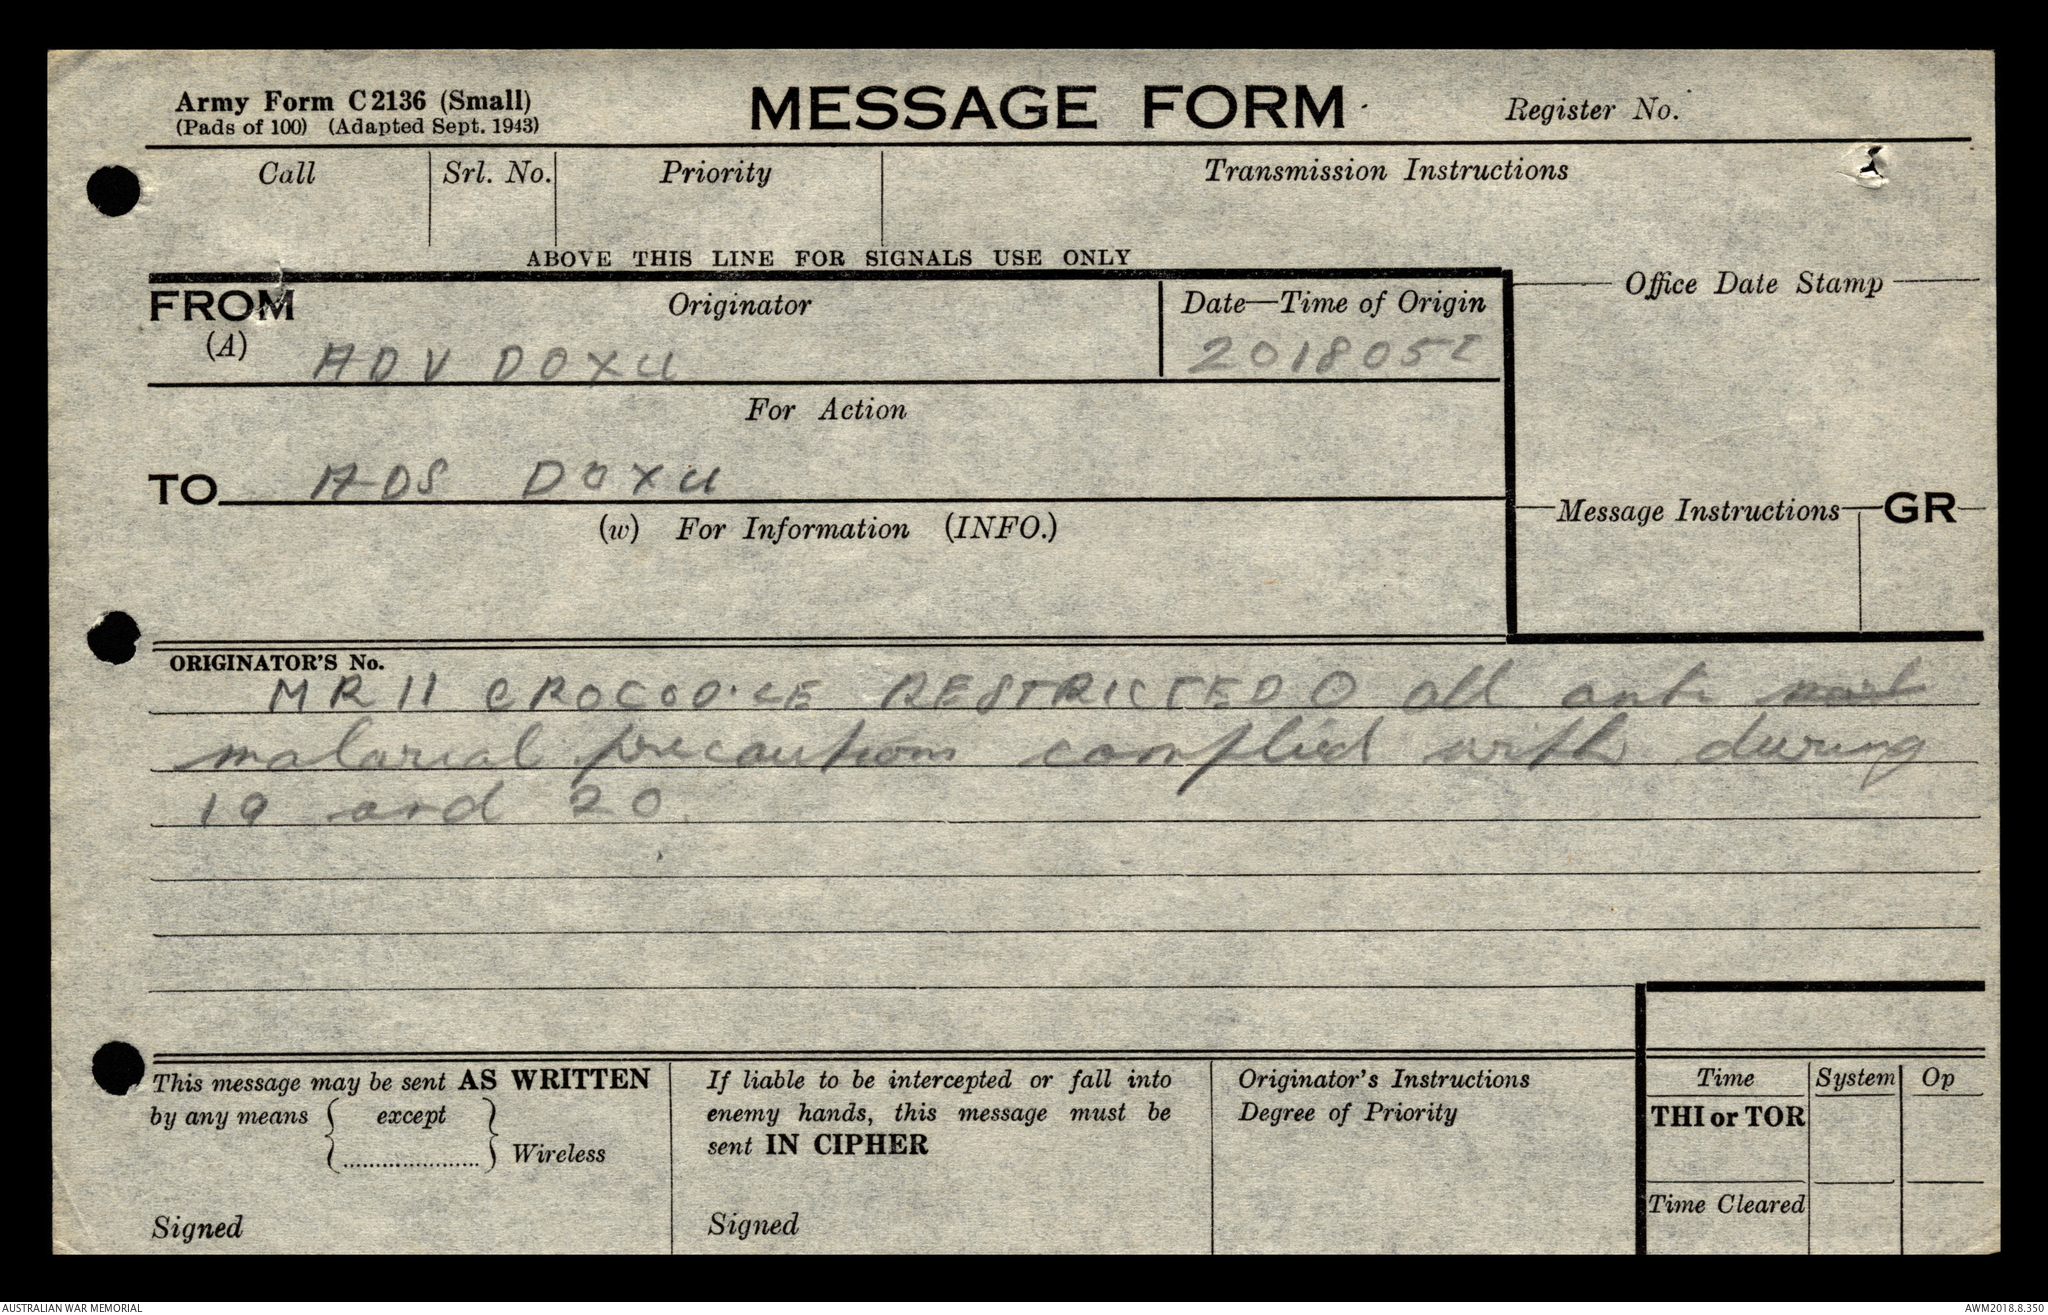 Army Form C2136 (Small)
(Pads of 100) (Adapted Sept. 1943)
MESSAGE FORM
Register No.
Call
Srl. No.
Priority
Transmission Instructions
ABOVE THIS LINE FOR SIGNALS USE ONLY
FROM
(A)
Originator
ADV DOXU
Date—Time of Origin
201805I
Office Date Stamp
For Action
TO
ADS DOXU
(w) For Information (INFO.)
Message Instructions
GR
ORIGINATOR'S No.
MR 11 CROCODILE RESTRICTED O all anti
malarial precautions complied with during
19 and 20.
This message may be sent AS WRITTEN
by any means { except
..................... } Wireless
Signed
If liable to be intercepted or fall into
enemy hands, this message must be
sent IN CIPHER
Signed
Originator's Instructions
Degree of Priority
Time
System
Op
THI or TOR
Time Cleared
AUSTRALIAN WAR MEMORIAL
AWM2018.8.350